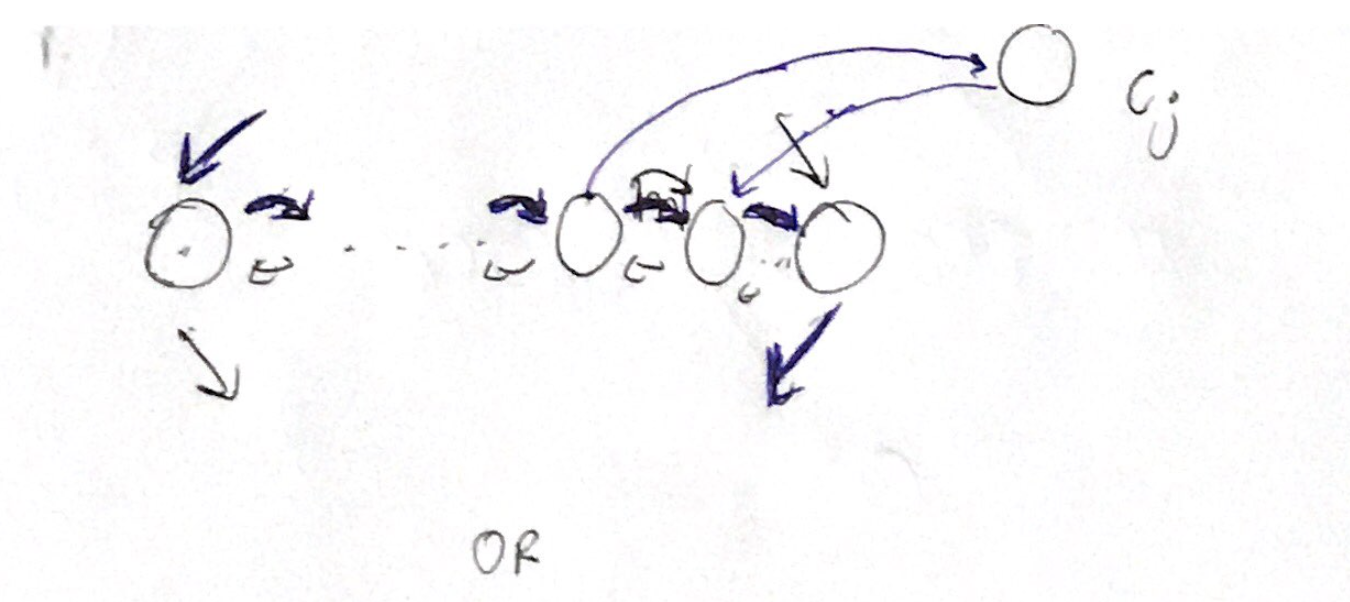 1.
Cj
OR